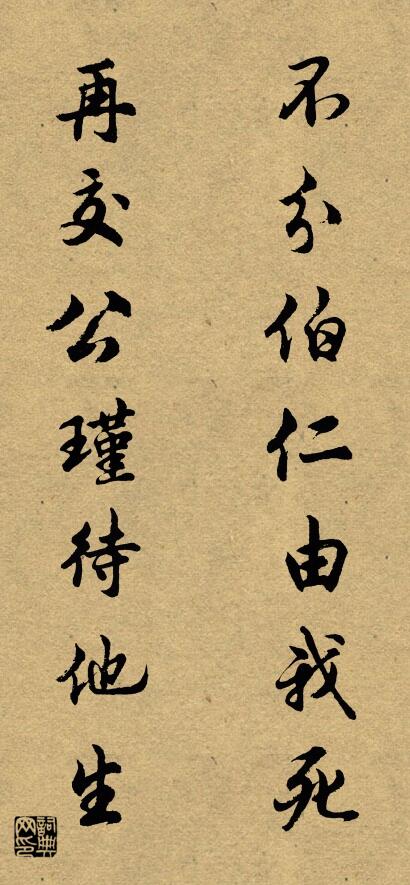 不分伯仁由我死
再交公瑾待他生
詞典网印